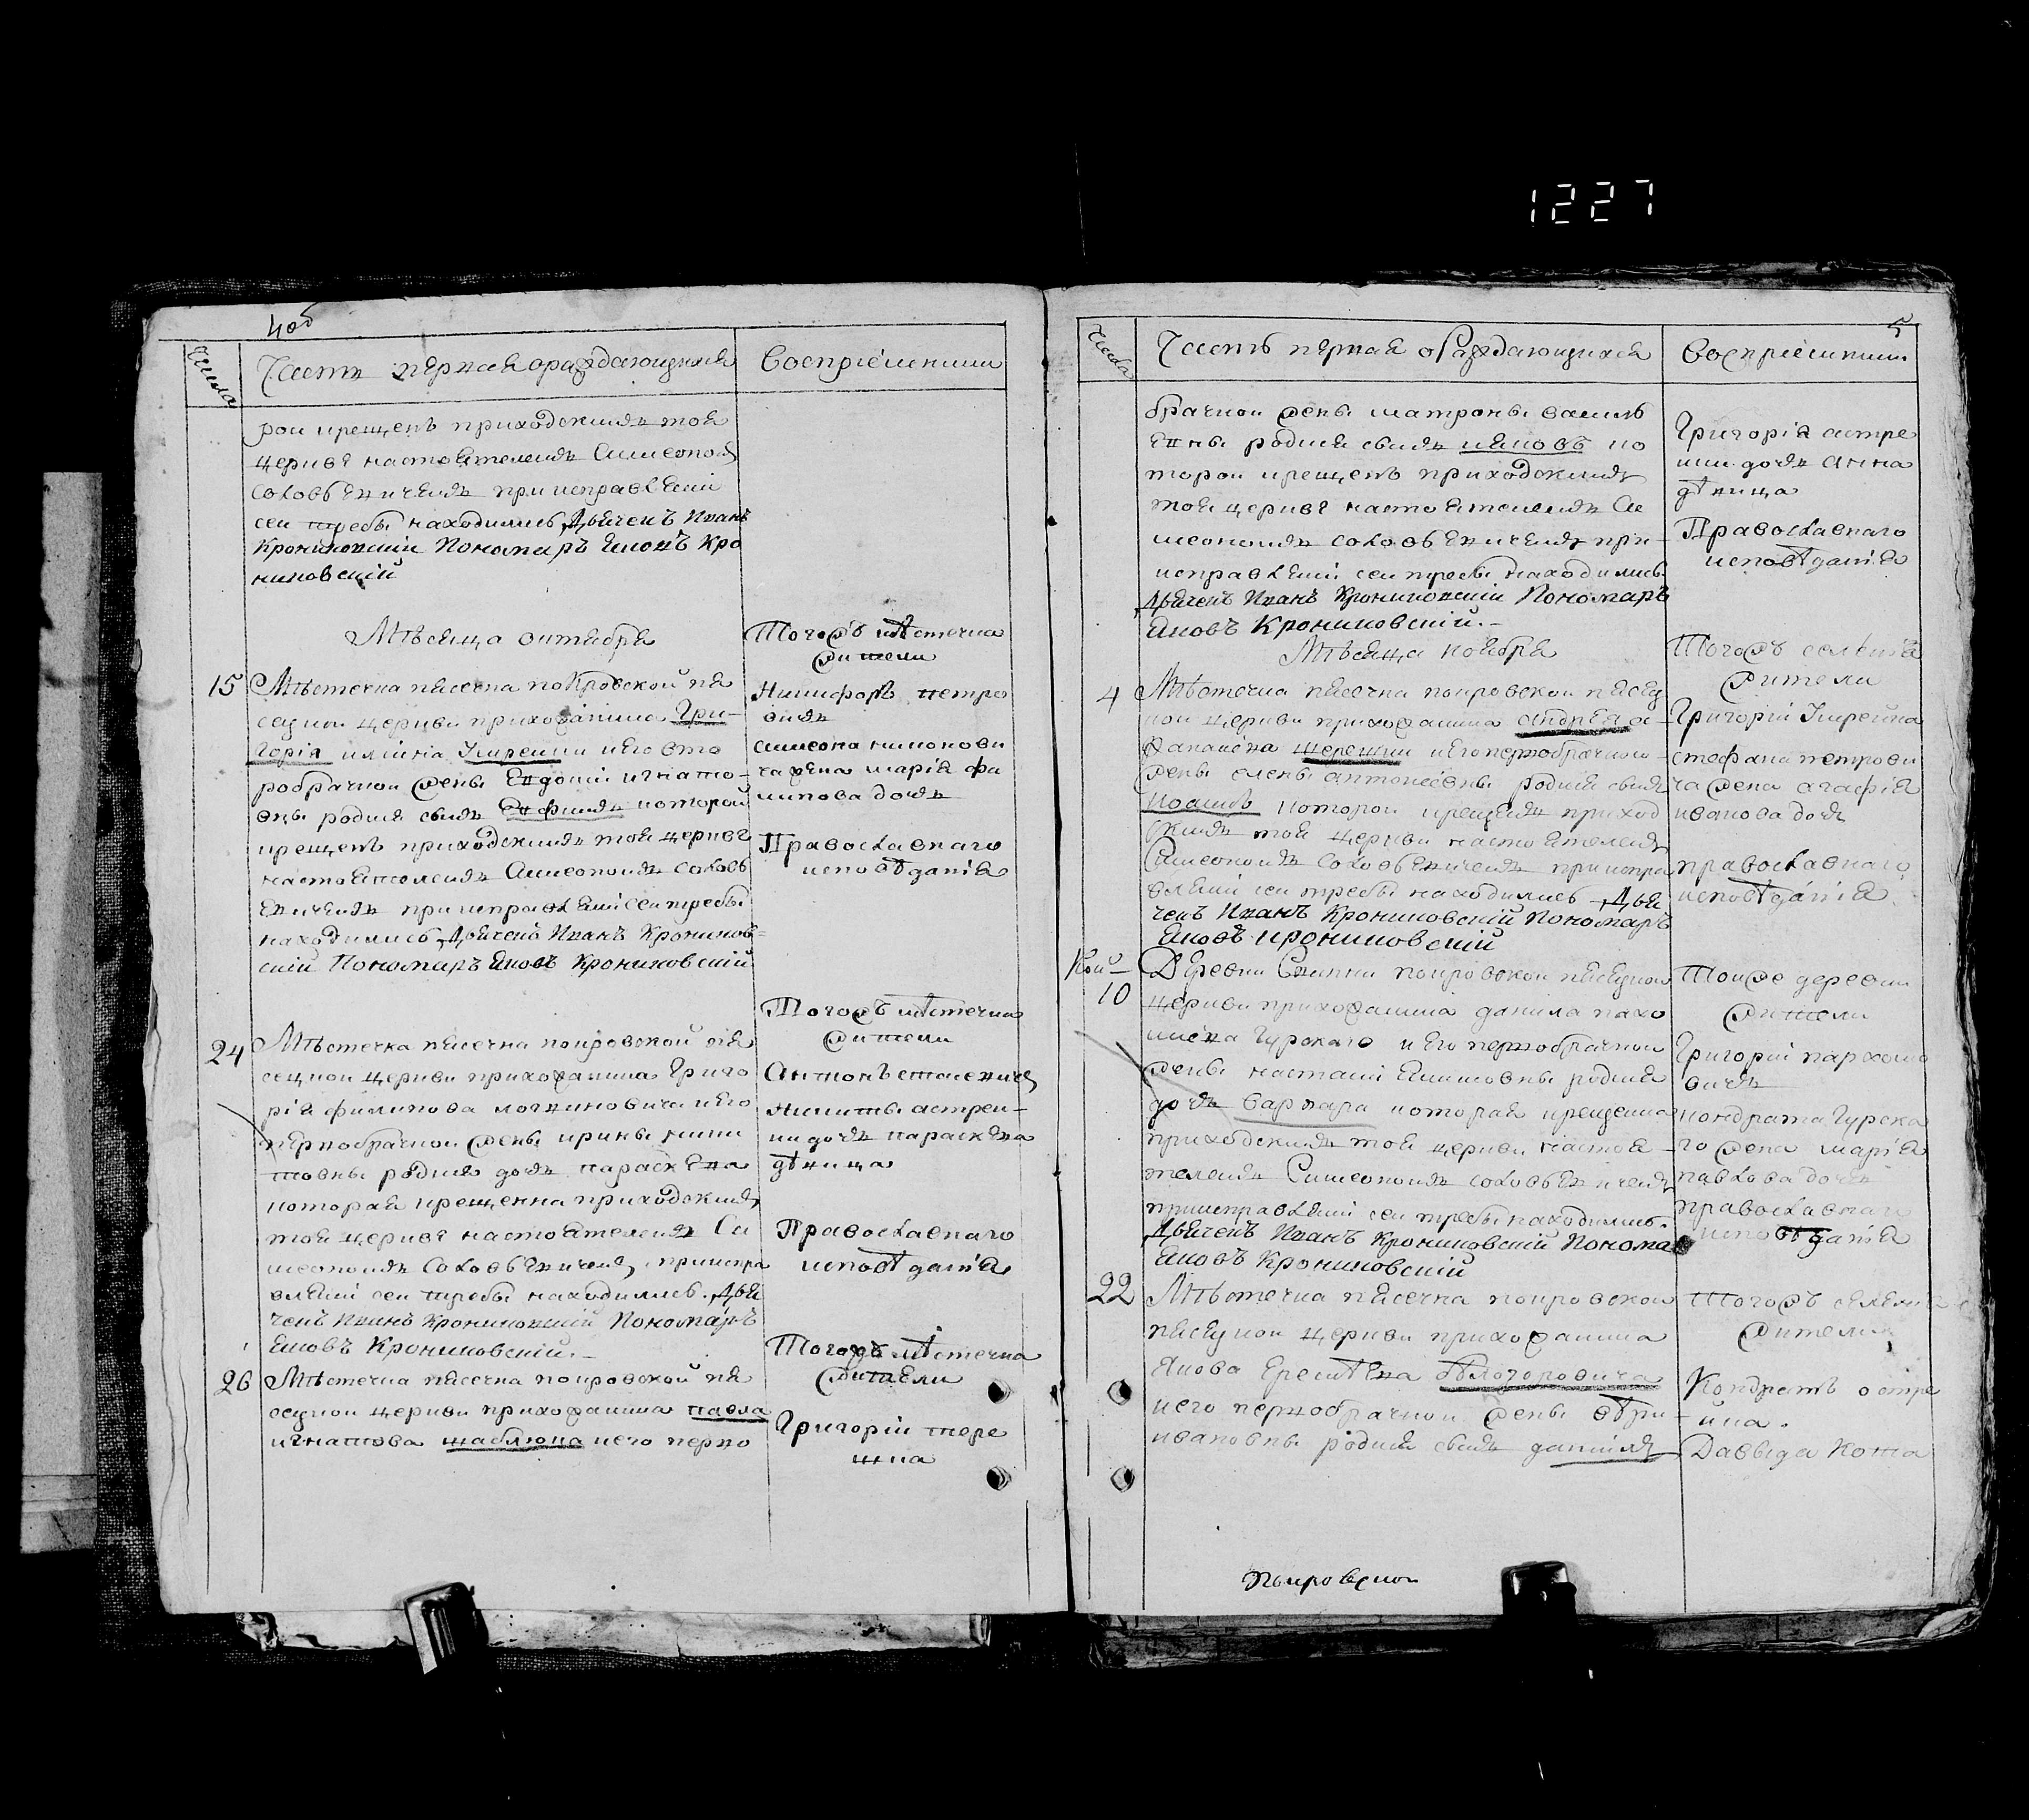 1227
4об
Числа
Часть первая о раждающихся
Восприемники
рои крещенъ приходскимъ тоя
церкве настоятелемъ Симеономъ
Соловьевичемъ при исправленіи
сеи требы находились Дьячекъ Иванъ
Крониковскіи Пономаръ Яковъ Кро
никовскіи
Мѣсяца октября
15
Мѣстечка Пясечна покровской пя
сецкои церкви прихожанина Гри-
горія
и его вто
робрачнои жены Евдокіи Игнато
вны родися сынъ которой
крещенъ приходскимъ тоя церкве
настоятелемъ Симеономъ Соловь
евичемъ при исправленіи сеи требы
находились Дьячекъ Иванъ Кроников=
скіи Пономаръ Яковъ Крониковскіи
Тогожъ мѣстечка
жители
Никифоръ петро
вичъ
Симеона никонови
ча жена марія фи
липова дочъ
Православнаго
исповѣданія
24
Мѣстечка пясечна покровской пя
сецкои церкви прихожанина Григо
рія филипова и его
первобрачнои жены ирины ники
товны родися дочъ параскева
которая крещенна приходскимъ
тоя церкве настоятелемъ Си
меономъ Соловьевичемъ при испра
вленіи сеи требы находились Дья
чекъ Иванъ Крониковскіи Пономаръ
Яковъ Крониковскіи.
Тогожъ мѣстечка
жители
Антонъ
Никиты астреи-
ки дочъ параскева
дѣвица
Православнаго
исповѣданія
26
Мѣстечка пясечна покровской пя
сецкои церкви прихожанина павла
игнатова шаблюка и его перво
Тогожъ мѣстечка
жители
Григоріи тере
шка
5
Числа
Часть первая о Раждающихся
Восприемники
брачнои жены матроны василь
евны родися сынъ яковъ ко
торои крещенъ приходскимъ
тоя церкве настоятелемъ Си
меономъ соловьевичемъ при-
исправленіи сеи требы находились
Дьячекъ Иванъ Крониковскіи Пономаръ
Яковъ Крониковскіи.
Григорія астре
ики дочъ анна
дѣвица
Православнаго
исповѣданія
Мѣсяца ноября
4
Мѣстечка пясечна покровскои пясец
кои церкви прихожанина андрея а-
фанасіева терешки и его первобрачнои
жены елены антоніевны родися сынъ
которои крещенъ приход
скимъ тоя церкви настоятелемъ
Симеономъ Соловьевичемъ при испра
вленіи сеи требы находились Дья
чекъ Иванъ Крониковскіи Пономаръ
Яковъ крониковскіи
Тогожъ
жители
Григоріи
стефана петрови
ча жена агафія
иванова дочъ
православнаго
исповѣданія.
10
Деревни покровскои пясецкои
церкви прихожанина данила пахо
міева Гурского и его первобрачнои
жены настасіи родися
дочъ варвара которая крещенна
приходскимъ тоя церкви настоя
телемъ Симеономъ соловьевичемъ
при исправленіи сеи требы находились
Дьячекъ Иванъ Крониковскіи Понома
Яковъ Крониковскіи
Тоиже деревни
жители
Григоріи пархомо
вичъ
кондрата Гурска
го жена марія
павлова дочъ
православнаго
исповѣданія
22
Мѣстечка пясечка покровскои
пясецкои церкви прихожанина
Якова Еремѣева бѣлогоровича
и его первобрачнои жены
ивановны родися сынъ даніилъ
Тогожъ
жители
Кондратъ остре
ика.
Давыда Кота
покровскои